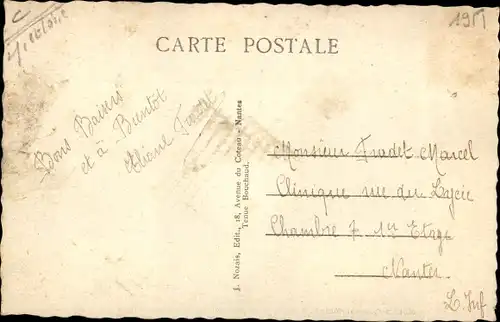 CARTE POSTALE
1951
Bons Baisers
et à Bientôt
Eliane Fradet
J. Nozais, Edit., 18, Avenue du Coteau - Nantes
Tenue Bouchaud.
Monsieur Fradet Marcel
Clinique rue du Lycée
Chambre 7 1er Etage
Nantes
L. Inf